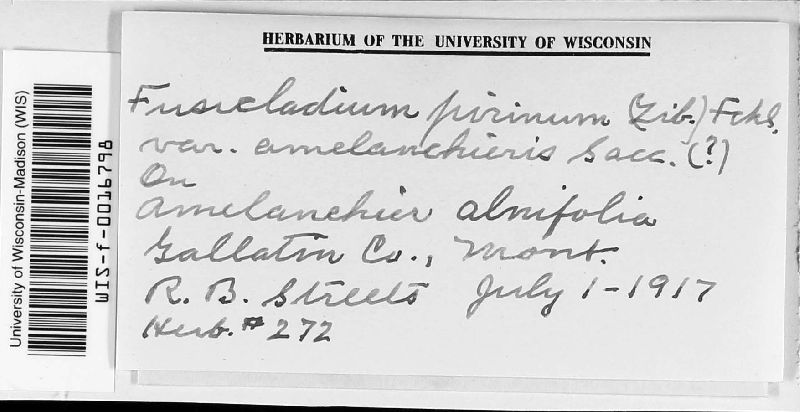 HERBARIUM OF THE UNIVERSITY OF WISCONSIN
Fusicladium pirinum (Lib.) Fckl.
var. amelanchieris Sacc. (?)
On
Amelanchier alnifolia
Gallatin Co., Mont.
R. B. Streets July 1-1917
Herb. # 272
University of Wisconsin-Madison (WIS)
WIS-f-0016798